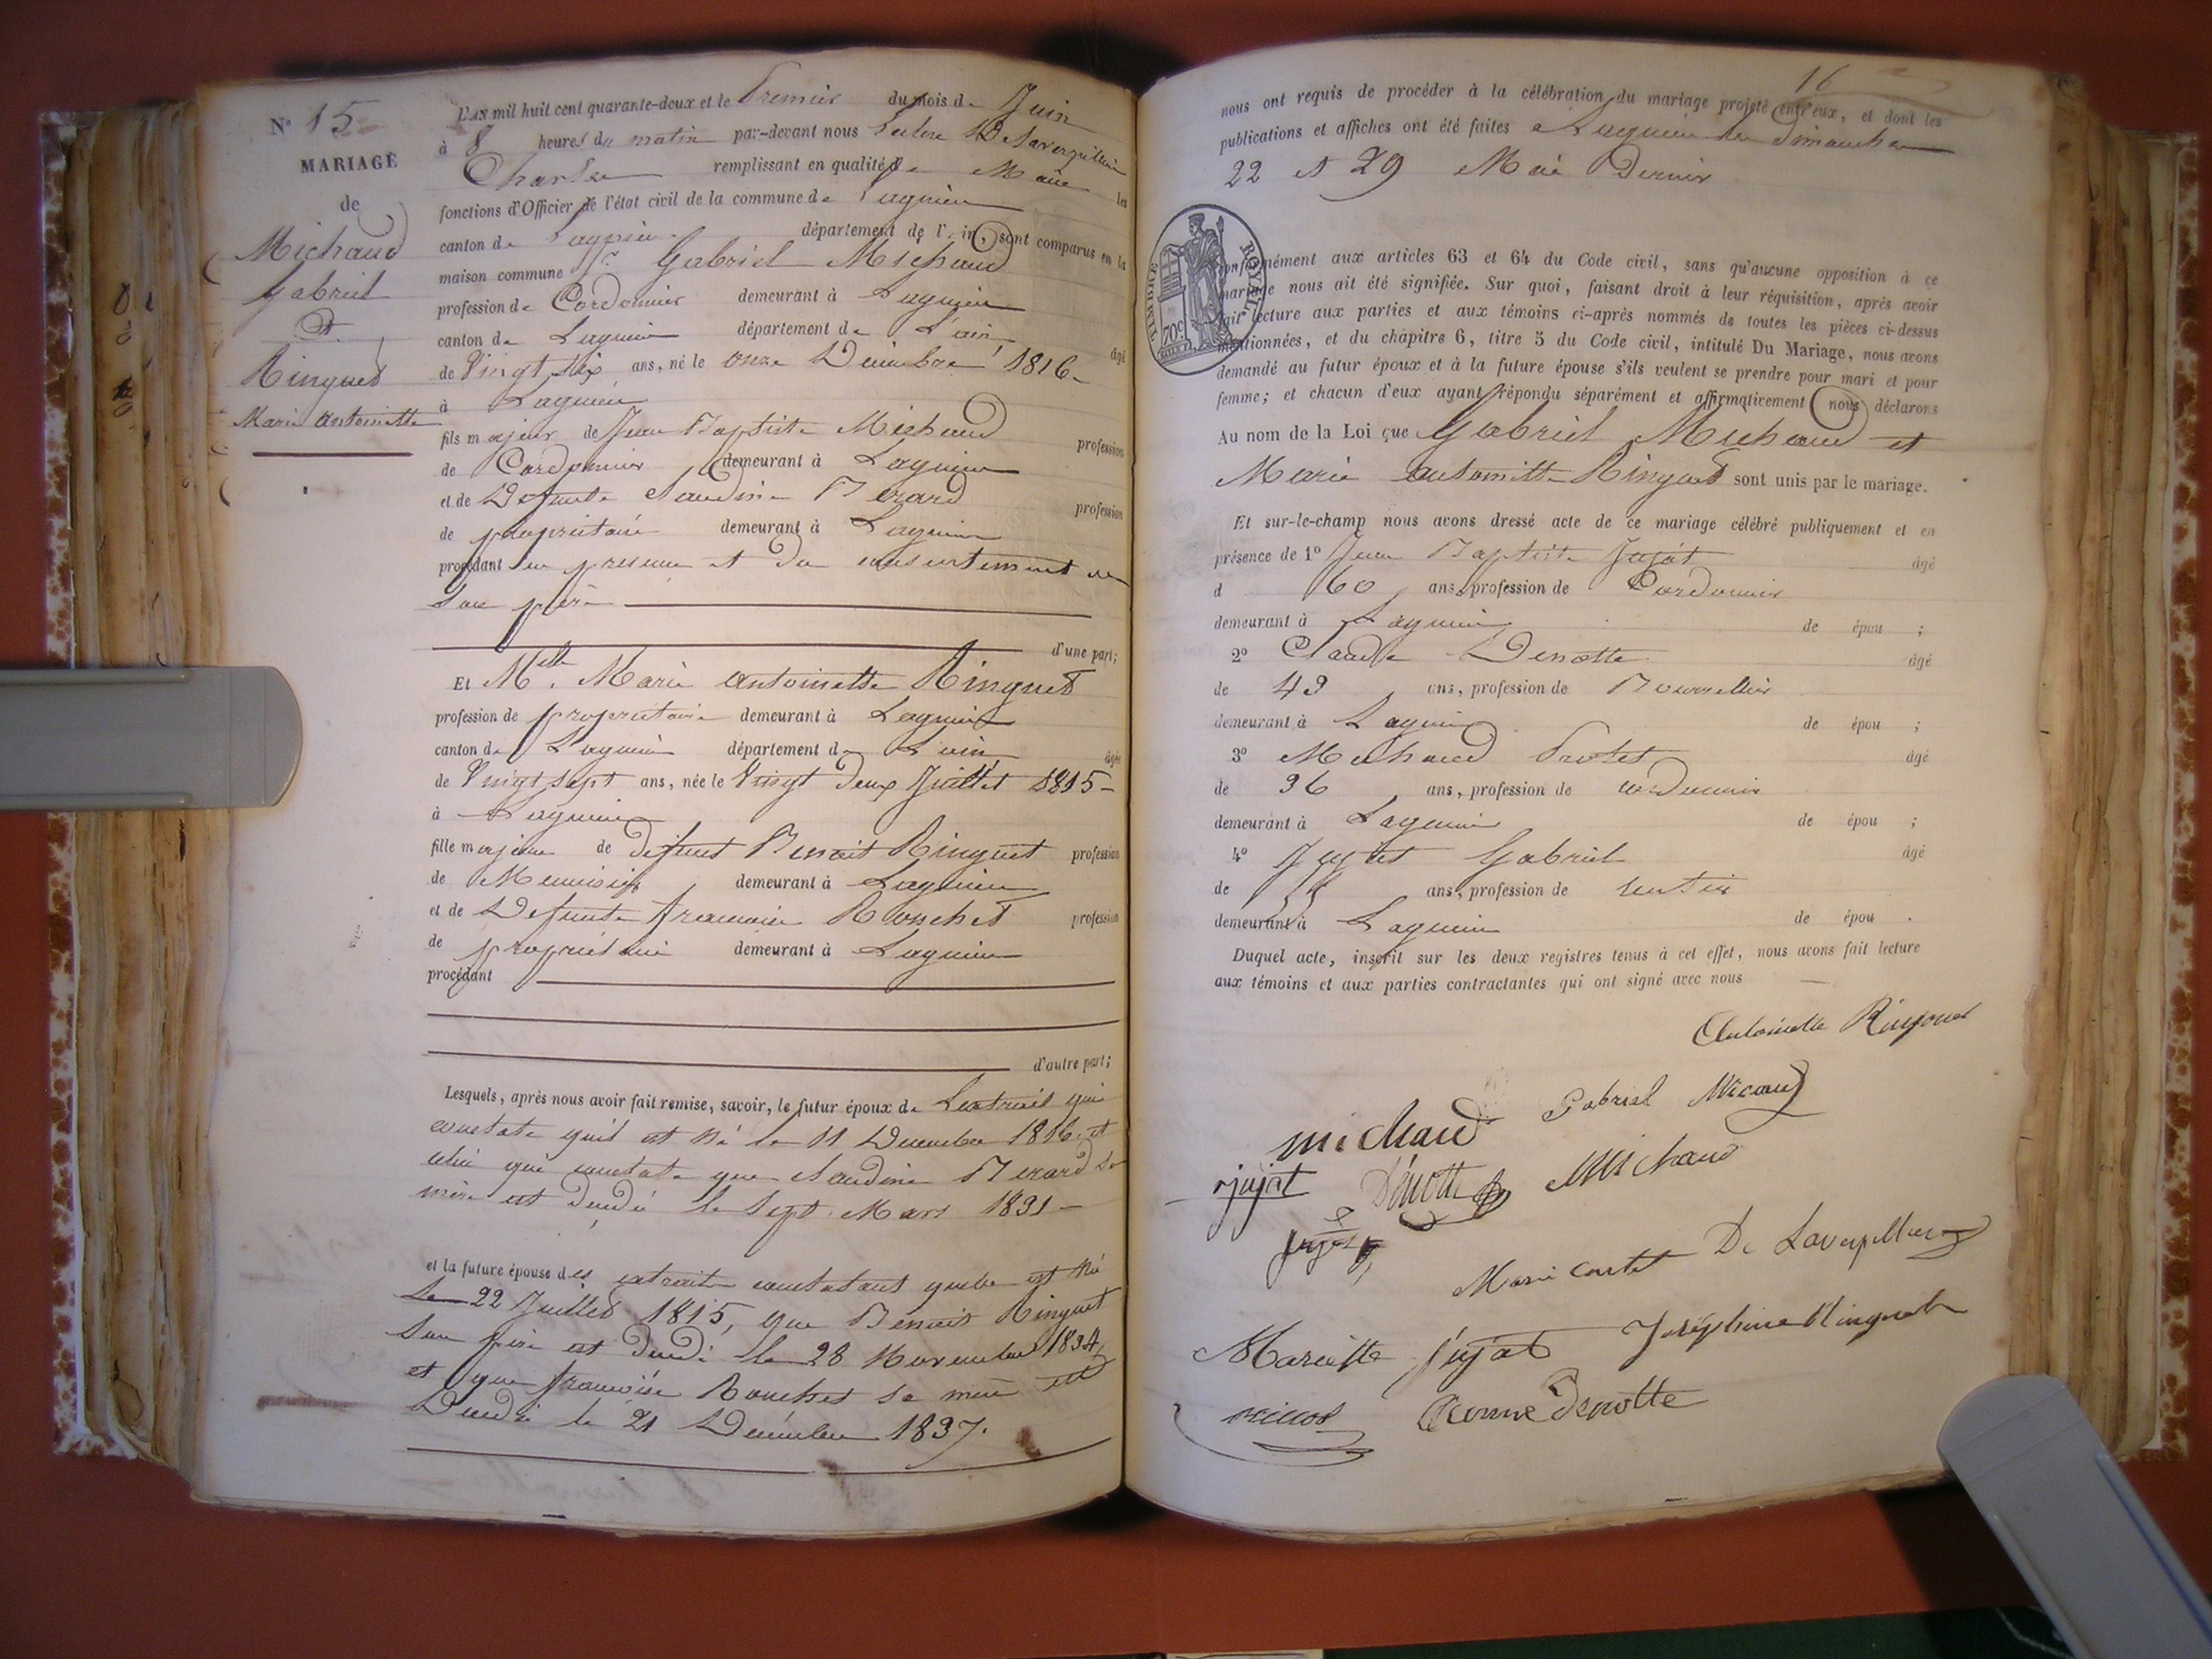 N° 15
MARIAGE
de
Michaud
Gabriel
et
Ringuet
Marie antoinette
L'AN mil huit cent quarante-deux et le Premier du mois de Juin
à 8 heures du matin par-devant nous De Laverpilliere
Charles remplissant en qualité de Maire les
fonctions d'Officier de l'état civil de la commune de Lagnieu
canton de Lagnieu département de l'Ain, sont comparus en la
maison commune Sr Gabriel Michaud
profession de Cordonnier demeurant à Lagnieu
canton de Lagnieu département de L'ain âgé
de Vingt six ans, né le onze Décembre 1816
à Lagnieu
fils majeur de Jean Baptiste Michaud profession
de Cordonnier demeurant à Lagnieu
et de Defunte Claudine Berard profession
de propriétaire demeurant à Lagnieu
procédant en presence et du consentement de
son père
d'une part;
Et Melle Marie antoinette Ringuet
profession de propriétaire demeurant à Lagnieu
canton de Lagnieu département de L'ain âgée
de Vingt sept ans, née le Vingt deux Juillet 1815
à Lagnieu
fille majeure de defunt Benoit Ringuet profession
de Menuisier demeurant à Lagnieu
et de Defunte francoise Bouchet profession
de propriétaire demeurant à Lagnieu
procédant
d'autre part;
Lesquels, après nous avoir fait remise, savoir, le futur époux de Lextrait qui
constate quil est né le 11 Decembre 1816 et
celui qui constate que Claudine Berard sa
mère est décédé le Sept Mars 1831
et la future épouse des extraits constatant quelle est né
le 22 Juillet 1815, que Benoit Ringuet
son père est décédé le 28 Novembre 1834
et que francoise Bouchet sa mère est
Décédé le 21 Décembre 1837.
16
nous ont requis de procéder à la célébration du mariage projeté entr'eux, et dont les
publications et affiches ont été faites a Lagnieu les dimanches
22 et 29 Mai Dernier
TIMBRE ROYAL
70c
conformément aux articles 63 et 64 du Code civil, sans qu'aucune opposition à ce
mariage nous ait été signifiée. Sur quoi, faisant droit à leur réquisition, après avoir
fait lecture aux parties et aux témoins ci-après nommés de toutes les pièces ci-dessus
mentionnées, et du chapitre 6, titre 5 du Code civil, intitulé Du Mariage, nous avons
demandé au futur époux et à la future épouse s'ils veulent se prendre pour mari et pour
femme; et chacun d'eux ayant répondu séparément et affirmativement nous déclarons
Au nom de la Loi que Gabriel Michaud et
Marie antoinette Ringuet sont unis par le mariage.
Et sur-le-champ nous avons dressé acte de ce mariage célébré publiquement et en
présence de 1° Jean Baptiste Jujat âgé
d 60 ans, profession de Cordonnier
demeurant à Lagnieu de épou ;
2° Claude Denotte âgé
de 43 ans, profession de Bourrellier
demeurant à Lagnieu de épou ;
3° Michaud Protet âgé
de 36 ans, profession de cordonnier
demeurant à Lagnieu de épou ;
4° Jujat Gabriel âgé
de ans, profession de rentier
demeurant à Lagnieu de épou .
Duquel acte, inscrit sur les deux registres tenus à cet effet, nous avons fait lecture
aux témoins et aux parties contractantes qui ont signé avec nous
Antoinette Ringuet
Gabriel Micaud
michaud
jujat Dénotte Michaud
jujat
Marie De Laverpilliere
Mariette Jujat Joséphine Ringuet
Denotte